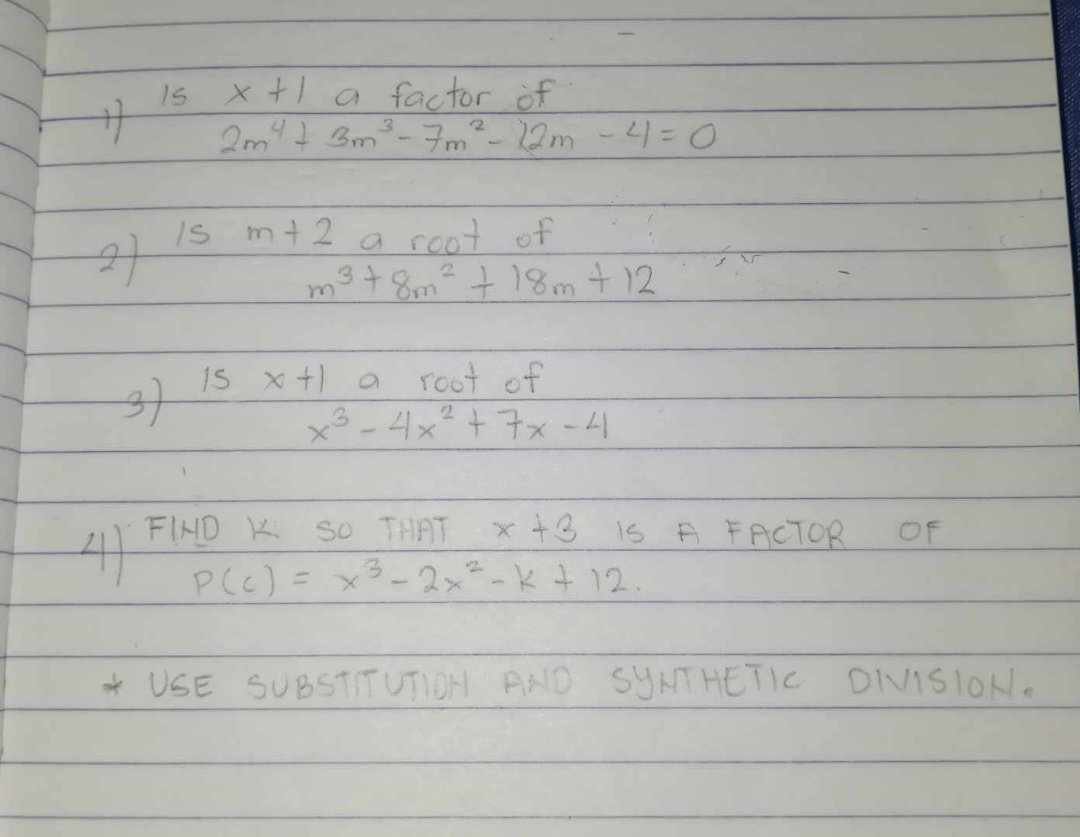 1) Is x+1 a factor of
2m⁴ + 3m³ - 7m² - 12m - 4 = 0
2) Is m+2 a root of
m³ + 8m² + 18m + 12
3) Is x+1 a root of
x³ - 4x² + 7x - 4
4) FIND K SO THAT x+3 IS A FACTOR OF
P(c) = x³ - 2x² - k + 12.
* USE SUBSTITUTION AND SYNTHETIC DIVISION.